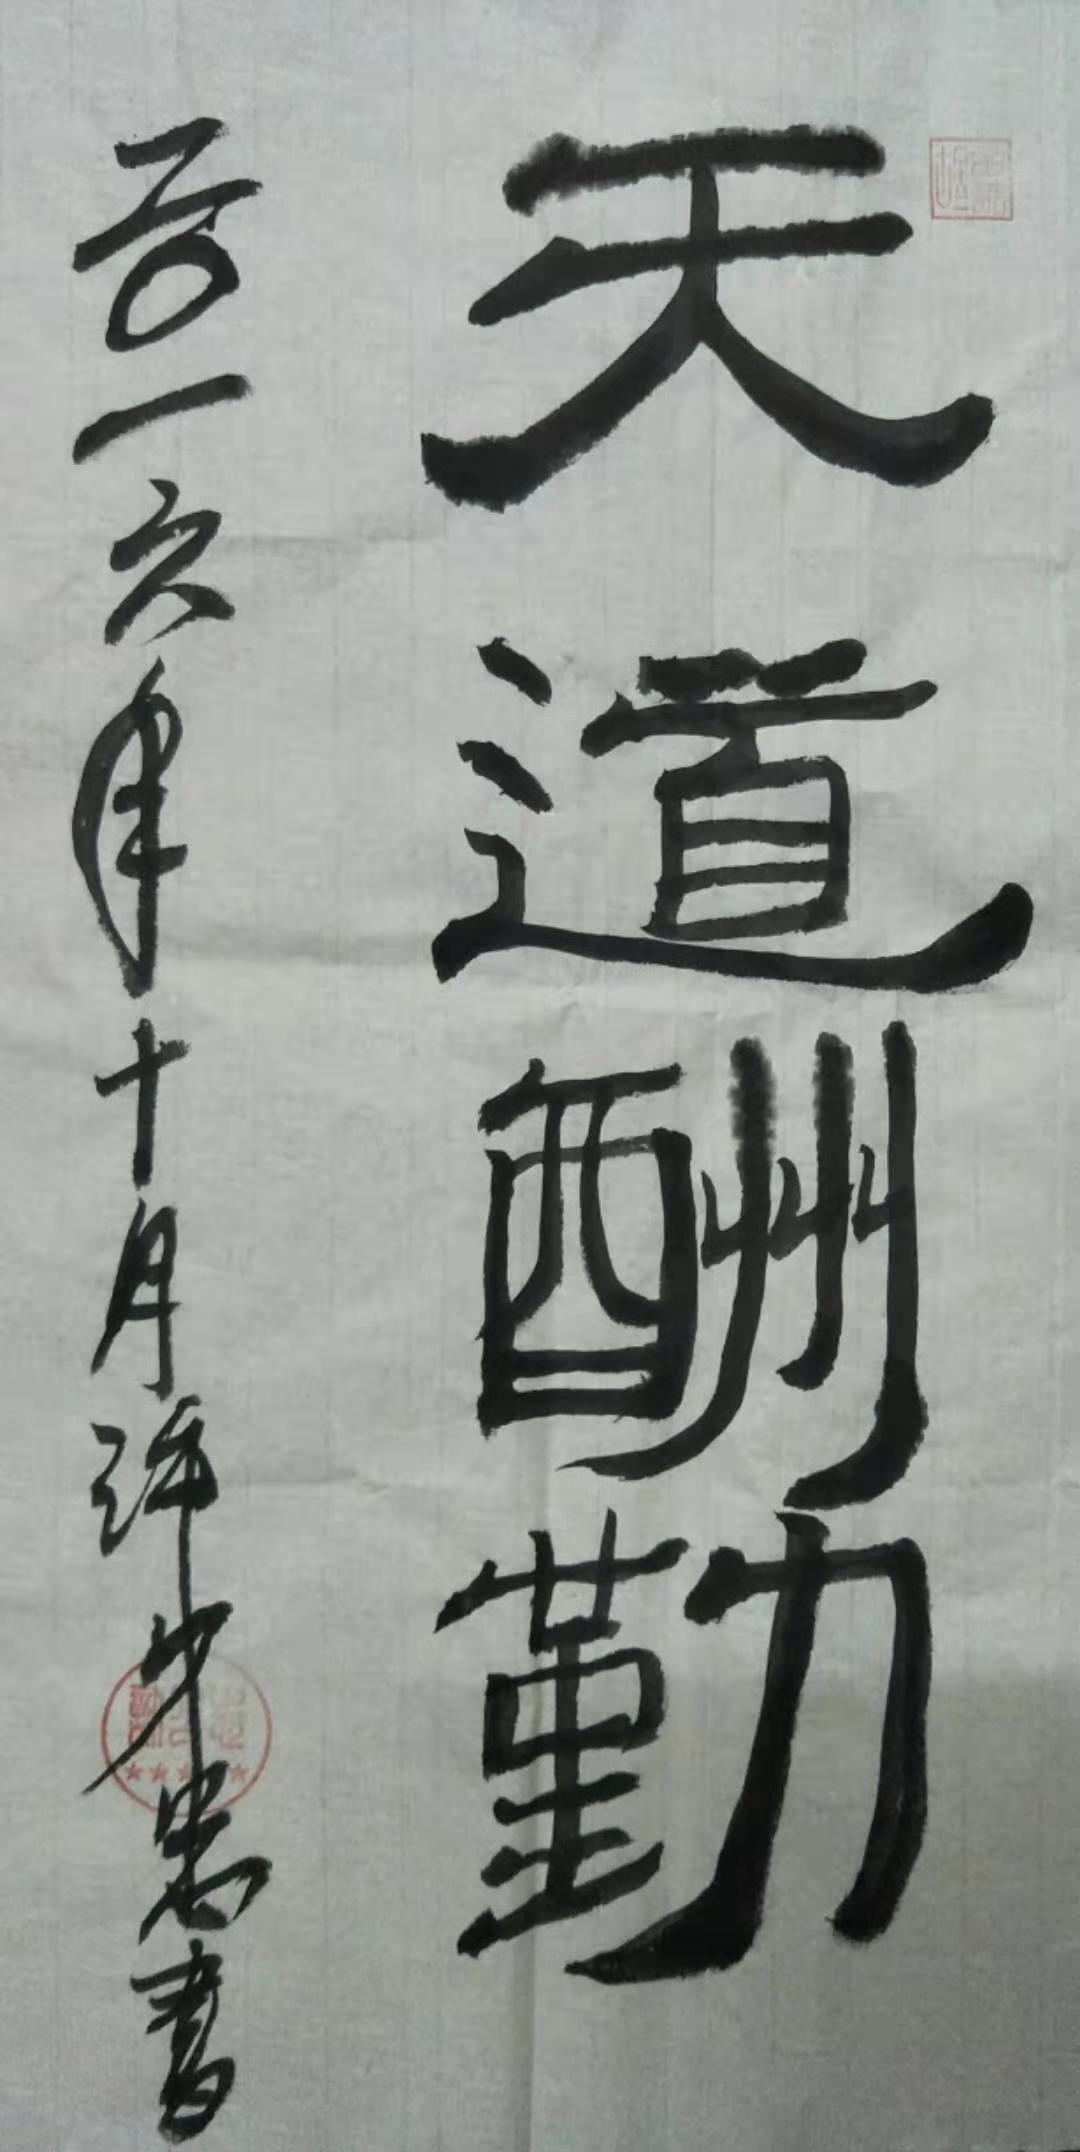 天道酬勤
二〇一六年十月许少忠书